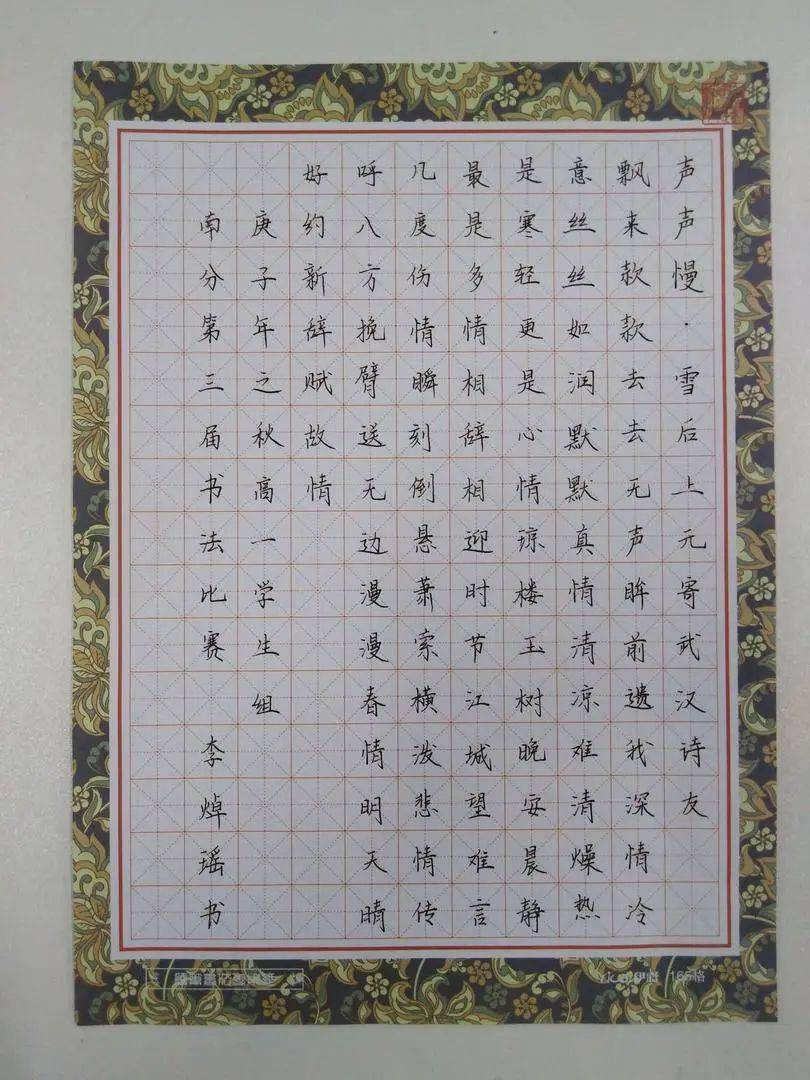 声声慢·雪后上元寄武汉诗友
飘来款款去去无声眸前遗我深情冷
意丝丝如润默默真情清凉难清燥热
是寒轻更是心情琼楼玉树晚安晨静
最是多情相辞相迎时节江城望难言
几度伤情瞬刻倒悬萧索横泼悲情传
呼八方挽臂送无边漫漫春情明天晴
好约新辞赋故情
庚子年之秋高一学生组
南分第三届书法比赛 李焯瑶书
165格